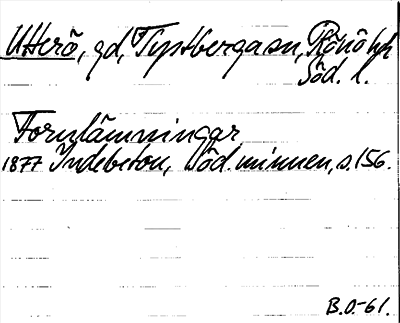 Utterö, gd, Tystberga sn, Rönö hd
Söd. l.
Fornlämningar
1877 Indebetou, Söd. minnen, s. 156.
B.O.-61.